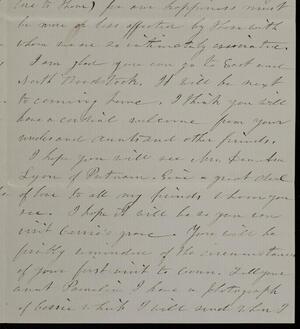 for our happiness must
be more or less affected by those with
whom we are so intimately associated.
I am glad you can go to East and
North Woodstock. It will be next
to coming home. I think you will
have a cordial welcome from your
uncles and aunts and other friends.
I hope you will see Mrs.
Lyon of Putnam. Give a great deal
of love to all my friends whom you
see. I hope it will be so you can
visit Carrie's grave. You will be
reminded of the circumstances
of your first visit to Conn. Tell your
aunt Pamelia I have a photograph
of which I will send when I